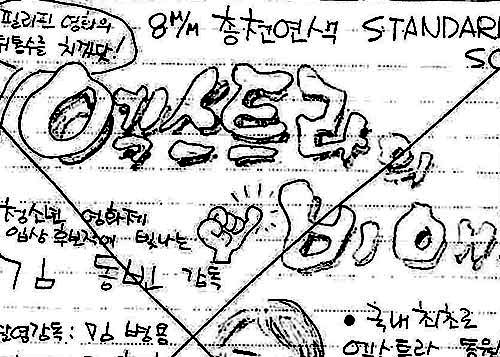 필리핀 영화의
뒤통수를 치겠닷!
8㎜ 총천연색 STANDARD
SC
엑스트라의
비애
청소년 영화제
입상 후보작에 빛나는
김 동빈 감독
촬영감독: 김 병용
• 국내 최초로
엑스트라 동원